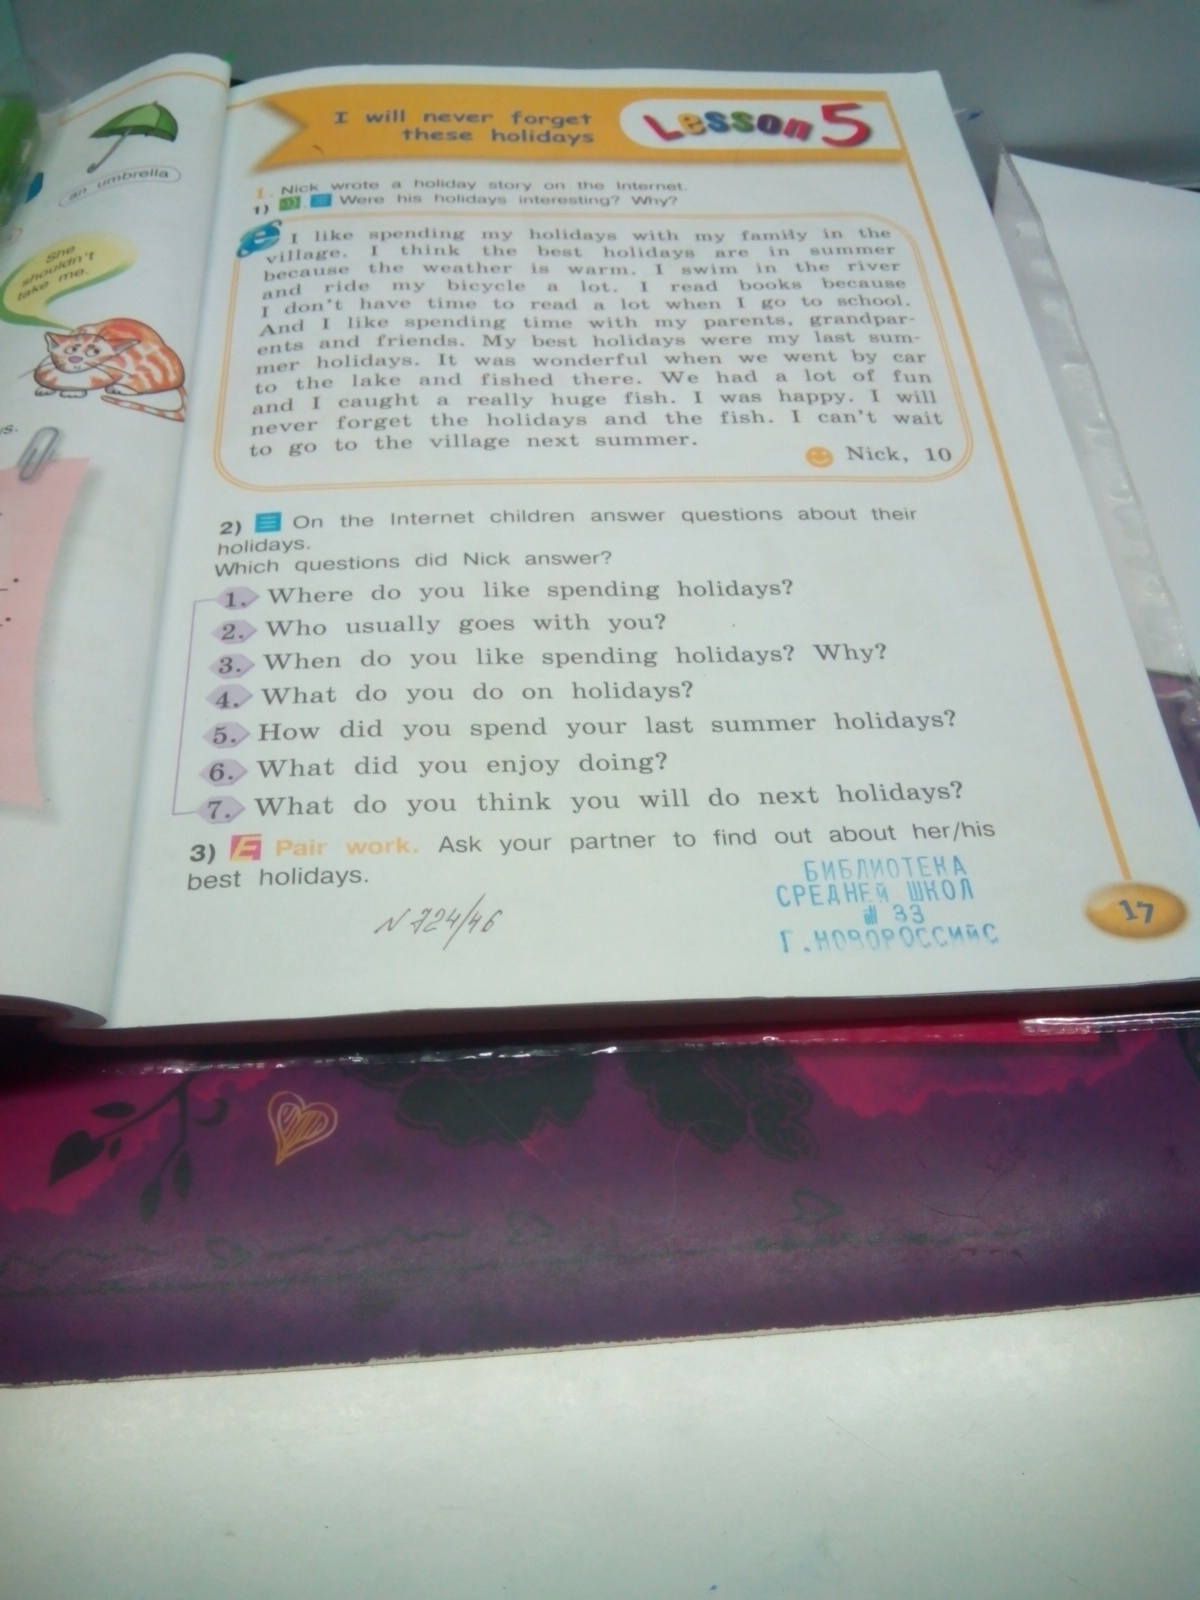 an umbrella
She
shouldn't
take me.
I will never forget
these holidays
Lesson 5
1. Nick wrote a holiday story on the Internet.
1) Were his holidays interesting? Why?
I like spending my holidays with my family in the
village. I think the best holidays are in summer
because the weather is warm. I swim in the river
and ride my bicycle a lot. I read books because
I don't have time to read a lot when I go to school.
And I like spending time with my parents, grandpar-
ents and friends. My best holidays were my last sum-
mer holidays. It was wonderful when we went by car
to the lake and fished there. We had a lot of fun
and I caught a really huge fish. I was happy. I will
never forget the holidays and the fish. I can't wait
to go to the village next summer.
Nick, 10
2) On the Internet children answer questions about their
holidays.
Which questions did Nick answer?
1. Where do you like spending holidays?
2. Who usually goes with you?
3. When do you like spending holidays? Why?
4. What do you do on holidays?
5. How did you spend your last summer holidays?
6. What did you enjoy doing?
7. What do you think you will do next holidays?
3) E Pair work. Ask your partner to find out about her/his
best holidays.
N 724/46
БИБЛИОТЕКА
СРЕДНЕЙ ШКОЛ
№ 33
Г.НОВОРОССИЙС
17